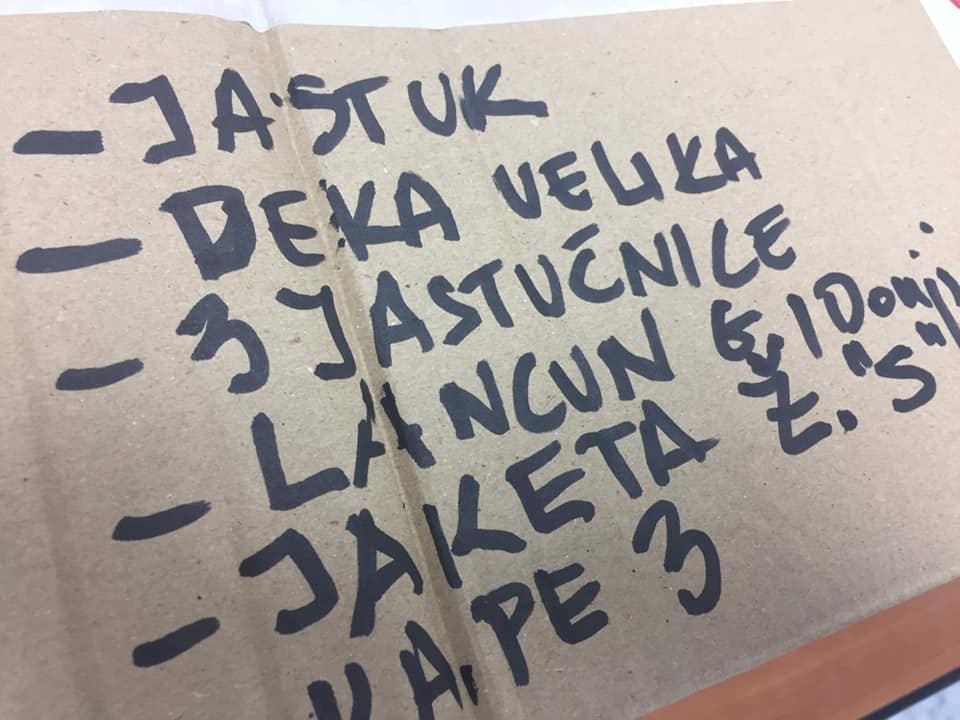 - JASTUK
- DEKA VELIKA
- 3 JASTUČNICE
- LANCUN G. I Donji
- JAKETA Ž. "S"
KAPE 3